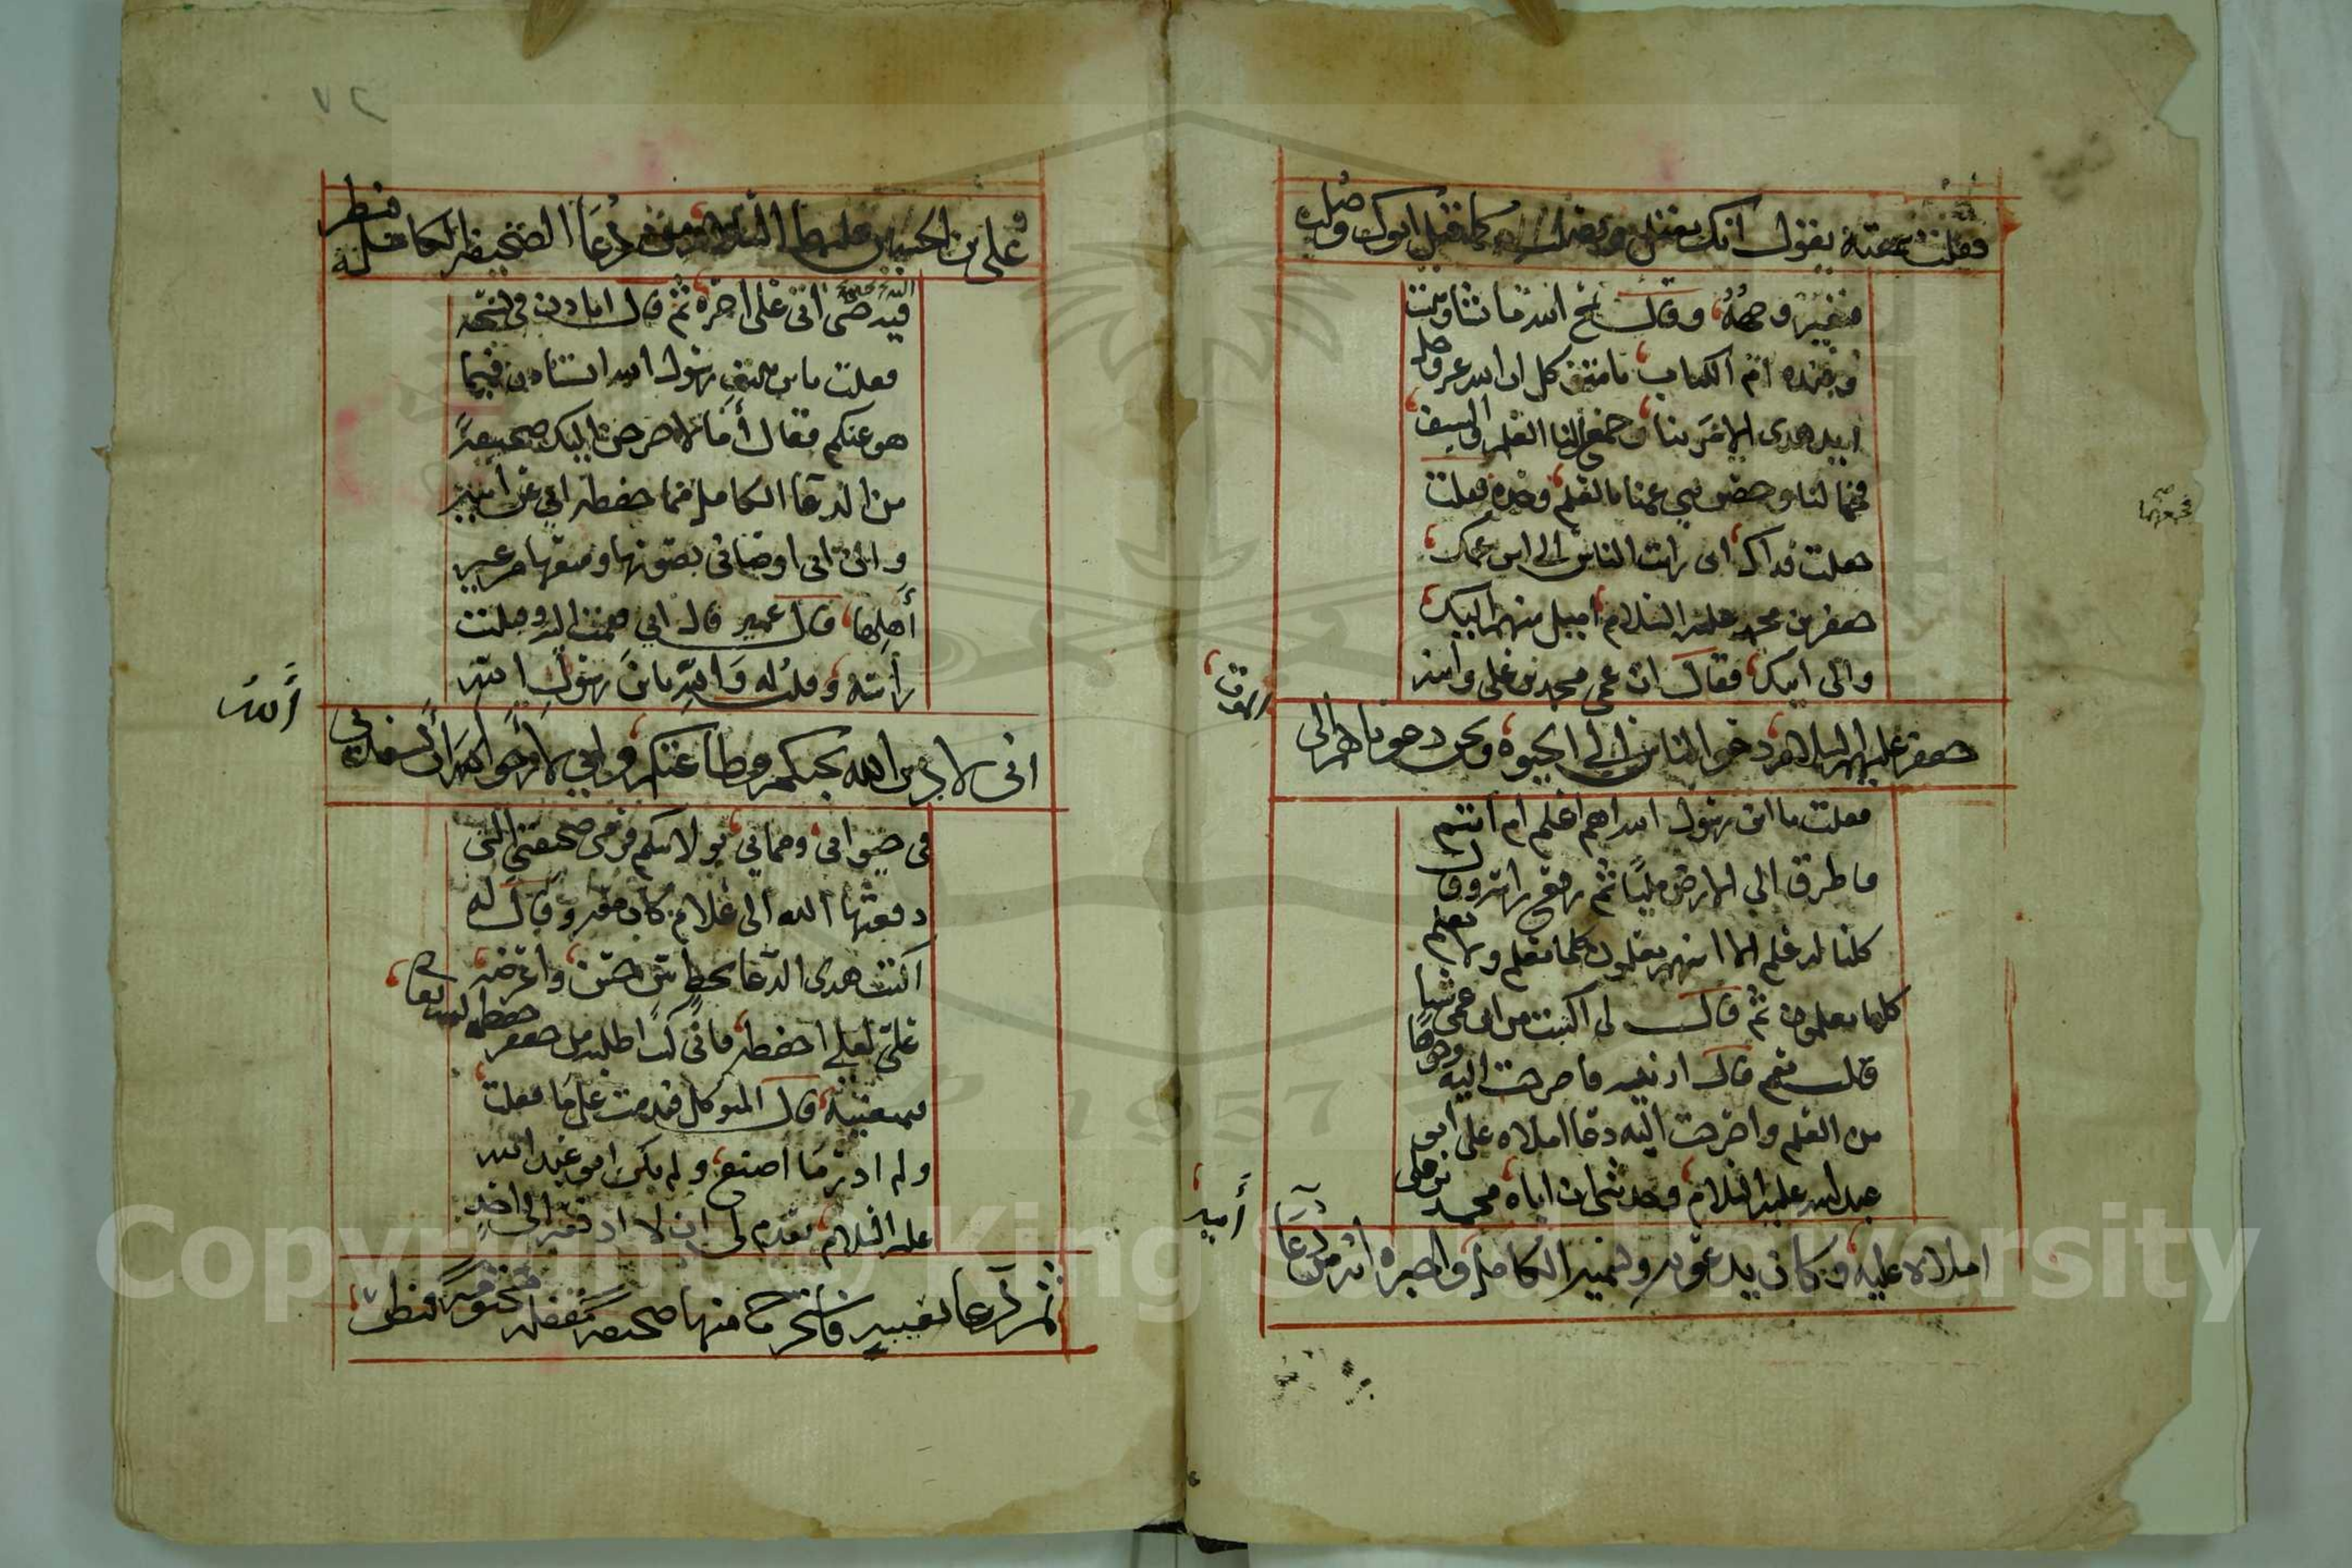 فقلت سمعته يقول انك تقتل وتصلب كما قتل ابوك وصلب
فتغير وجهه وقال يمحو الله ما يشاء ويثبت
وعنده ام الكتاب يا متوكل ان الله عز وجل
ايد هذى الامر بنا وجعل لنا العلم والسيف
فجمعا لنا وخص بني عمنا بالعلم وحده فقلت
جعلت فداك انى رايت الناس الى ابن عمك
جعفر بن محمد عليه السلام اميل منهم اليك
والى ابيك فقال ان عمى محمد بن على وابنه
جعفر عليهما السلام دعوا الناس الى الحيوة ونحن دعوناهم الى
الموت
فقلت يا ابن رسول الله اهم اعلم ام انتم
فاطرق الى الارض مليًا ثم رفع راسه وقال
كلنا له علم الا انهم يعلمون كلما نعلم ولا نعلم
كلما يعلمون ثم قال لى اكتبت من ابن عمى شيا
قلت نعم قال ارنيه فاخرجت اليه وجوها
من العلم واخرجت اليه دعا املاه على ابو
عبد الله عليه السلام وحدثنى ان اباه محمد بن على
املاه عليه وكان يدعو به ويسميه الكامل واخبره انه من دعا
ابيه
فجمعهما صح
٢٧
على بن الحسين عليهما السلام من دعا الصحيفة الكاملة فنظر
فيه حتى اتى على اخره ثم قال اتاذن في نسخه
فقلت يا ابن رسول الله اتستاذن فيما
هو عنكم فقال أما لاخرجن اليك صحيفة
من الدعا الكامل مما حفظه ابي عن ابيه
وان ابى اوصانى بصونها ومنعها من غير
أهلها قال عمير قال ابي فقمت اليه وقبلت
راسه وقلت له والله يا بن رسول الله
انى لادين الله بحبكم وطاعتكم واني لارجو ان يسعدني
الله
فى حيواتى ومماتي بولايتكم فرمى صحيفتي التى
دفعتها اليه الى غلام كان معه وقال له
اكتب هذى الدعا بخط بين حسن واعرضه
على لعلى احفظه فانى كنت اطلبه من جعفر حفظه الله
فيمنعنيه قال المتوكل فندمت على ما فعلت
ولم ادر ما اصنع ولم يكن ابو عبد الله
عليه السلام تقدم لى ان لا ادفعه الى احد
ثم دعا بعيبه فاستخرج منها صحيفة مقفلة مختومة فنظر